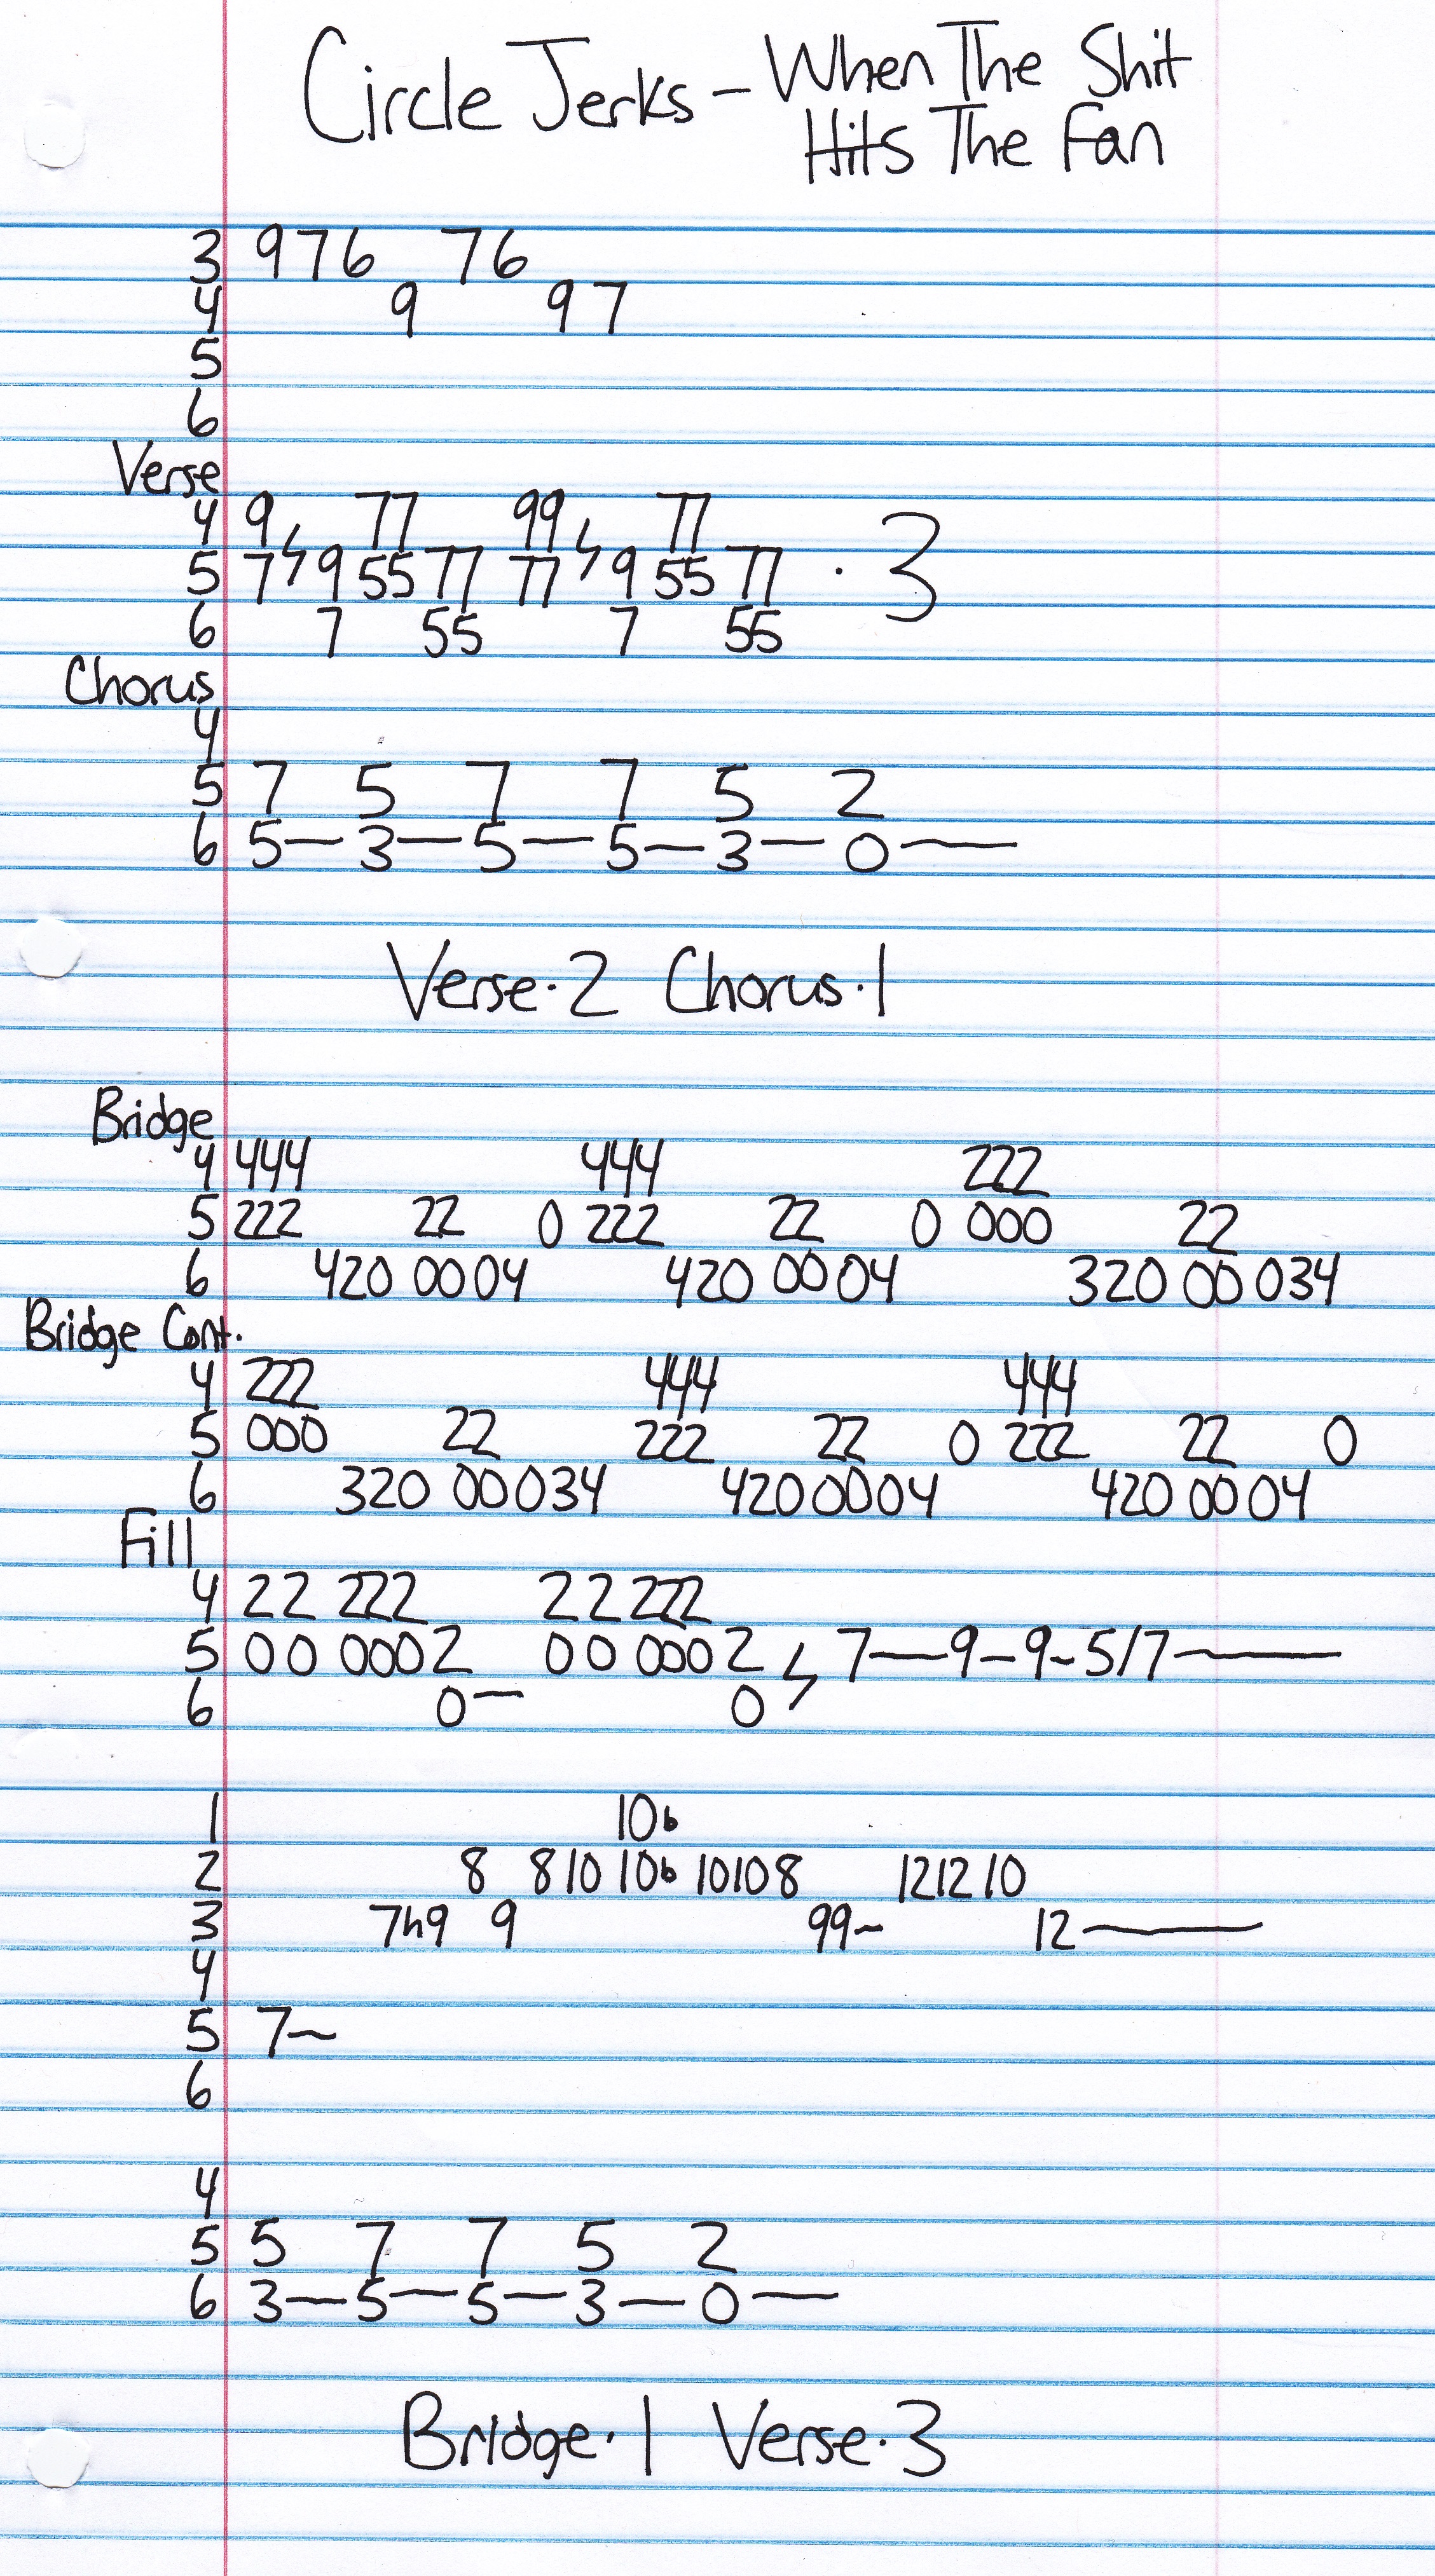 Circle Jerks - When The Shit
Hits The Fan
3 976 76
4 9 97
5
6
Verse
4 9 77 99 77
5 7 9 55 77 77 9 55 77 · 3
6 7 55 7 55
Chorus
4
5 7 5 7 7 5 2
6 5—3—5—5—3—0—
Verse·2 Chorus·1
Bridge
4 444 444 222
5 222 22 0 222 22 0 000 22
6 420 00 04 420 00 04 320 00 034
Bridge Cont.
4 222 444 444
5 000 22 222 22 0 222 22 0
6 320 00 034 420 00 04 420 00 04
Fill
4 22 222 22 222
5 00 0002 00 0002 7—9-9-5/7—
6 0— 0
1 10b
2 8 810 10b 10108 121210
3 7h9 9 99~ 12—
4
5 7~
6
4
5 5 7 7 5 2
6 3—5—5—3—0—
Bridge·1 Verse·3